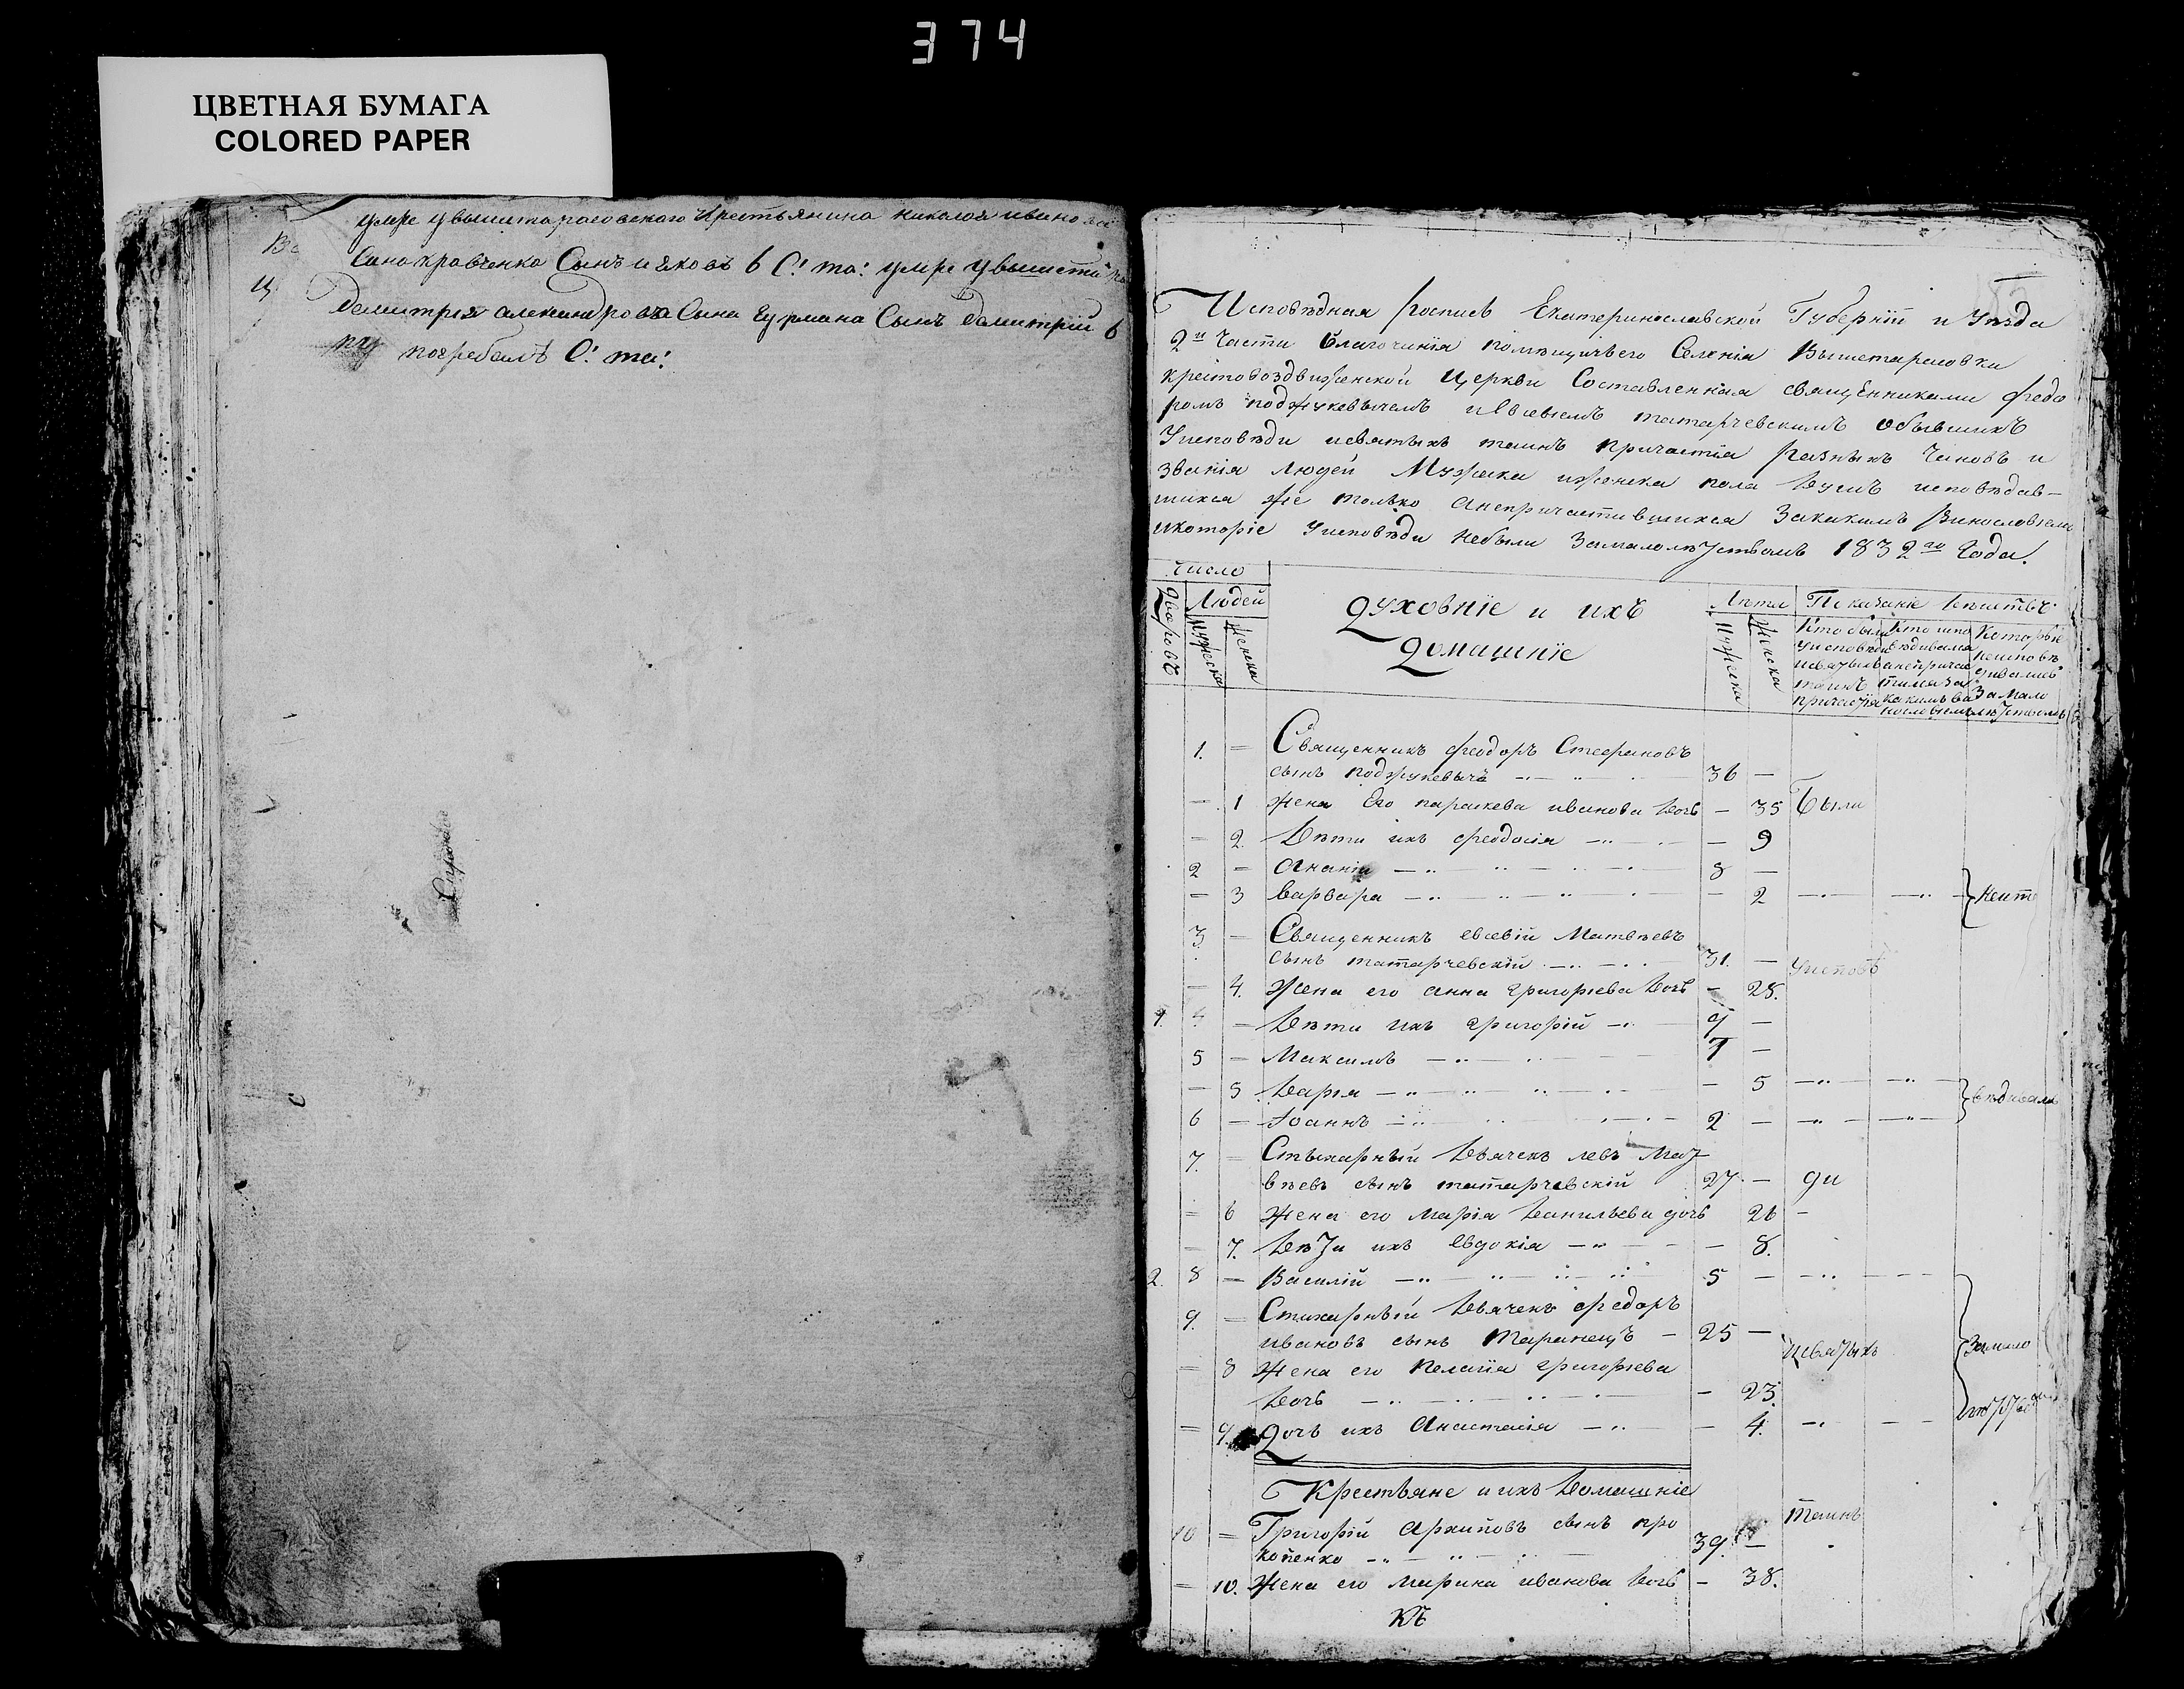 374
ЦВЕТНАЯ БУМАГА
COLORED PAPER
умре у вышетарасовского крестьянина николая ивано
Сина кравченка Сынъ и яковъ в С: та: умре у вышета
Демитрия александрова Сина Гурмана Сынъ демитрий в
погребалъ С: та:
Исповѣдная Роспись Екатеринославской Губерніи и Уѣзда
2й Части благочинія помѣщичьего Селенія Вышетарасовки
крестовоздвиженской Церкви Составленная священниками Федо
ромъ поджукевычемъ и Евсевіемъ татарчевскимъ обывшихъ
Уисповѣди исвятыхъ таинъ причастія Разныхъ Чиновъ и
званія людей Мужеска иженска пола Душъ исповѣдав-
шихся же только Анепричастившихся Закакимъ Винословіемъ
икоторіе Уисповѣди небыли Замалолѣтствомъ 1832го Года!
Число
Дворовъ
Людей
Мужеска
Женска
Духовніе и ихъ
Домашніе
Лѣта
Мужеска
Женска
Показаніе
Кто были
уисповѣди
исвятыхъ
таинъ
причастія
Кто испо
вѣдивался
анепричас
тился за
какимъ ви
нословіемъ
Которіе
неисповѣ
дивались
Замало
лѣтствомъ
1. — Священникъ Феодоръ Стефановъ
сынъ поджукевычъ 36 —
— 1 Жена Его параскева иванова Дочь — 35 Были
— 2. Дѣти ихъ феодосія — 9
2 — Ананія 8 —
— 3 Варвара — 2 Неисп
3 — Священникъ евсевій Матвѣевъ
сынъ татарчевскій 31. — Уисповѣ
— 4. Жена его анна григорьева Дочь — 28.
1. 4 — Дѣти ихъ григорій 9 —
5 — Максимъ 7 —
— 5 Дарія — 5
6 — Іоаннъ 2 — вѣдивал
7. — Стыхарный Дьячекъ левъ Мат
вѣевъ сынъ татарчевскій 27. — ди
— 6 Жена его Марія Данильева дочь 26 —
— 7. Дѣти ихъ Евдокія — 8.
2. 8 — Василій 5 —
9. — Стихарный Дьячекъ федоръ
ивановъ сынъ Таранецъ — 25 — исвятыхъ Замало
— 8 Жена его Пелагія григорьева
Дочь — 23.
— 9. Дочь ихъ Анастасія — 4.
Крестьяне и ихъ Домашніе
10 — Григорій Архиповъ сынъ про Таинъ
копенко 39. —
— 10. Жена его Марина иванова Дочь — 38.
Къ